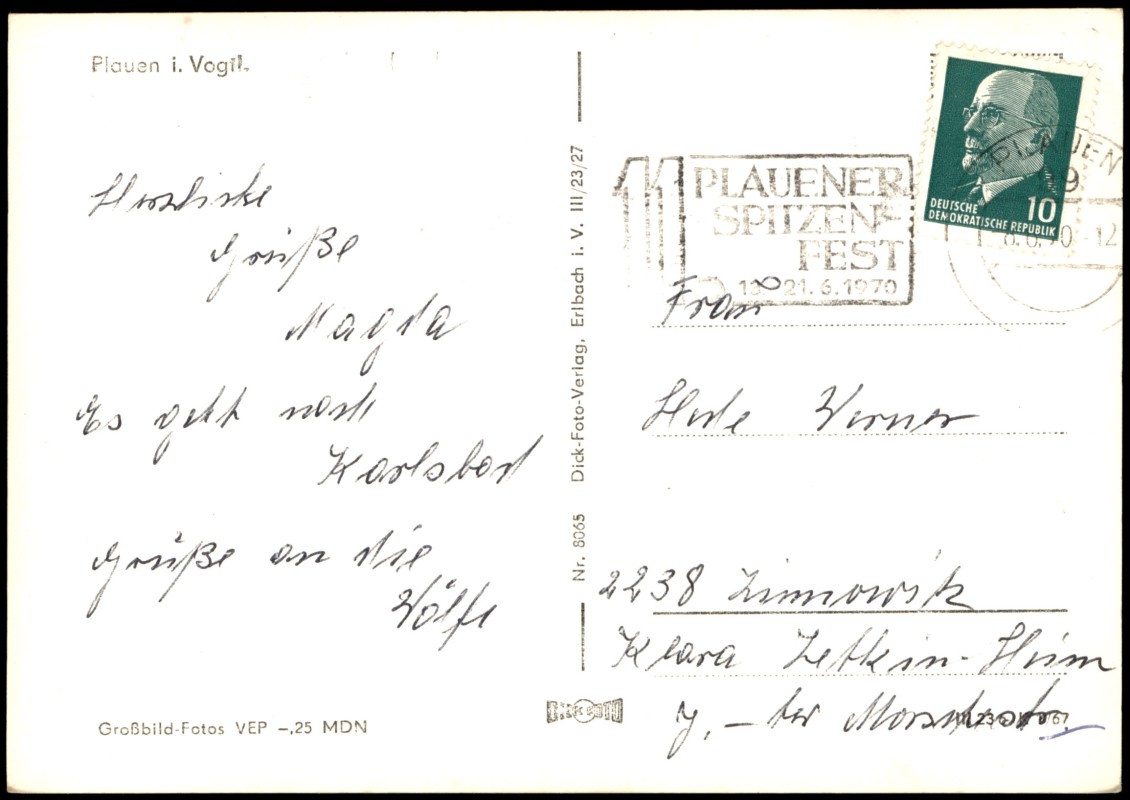 Plauen i. Vogtl.
Herzliche
Grüße
Magda
Es geht nach
Karlsbad
Grüße an die
Wölfe
Großbild-Fotos VEP -,25 MDN
Nr. 8065 Dick-Foto-Verlag, Erlbach i. V. III/23/27
DICK FOTO
11 PLAUENER
SPITZEN-
FEST
21.6.1970
DEUTSCHE
DEMOKRATISCHE REPUBLIK 10
PLAUEN
-12
Frau
Werner
2238 Zinnowitz
Klara Zetkin-Heim